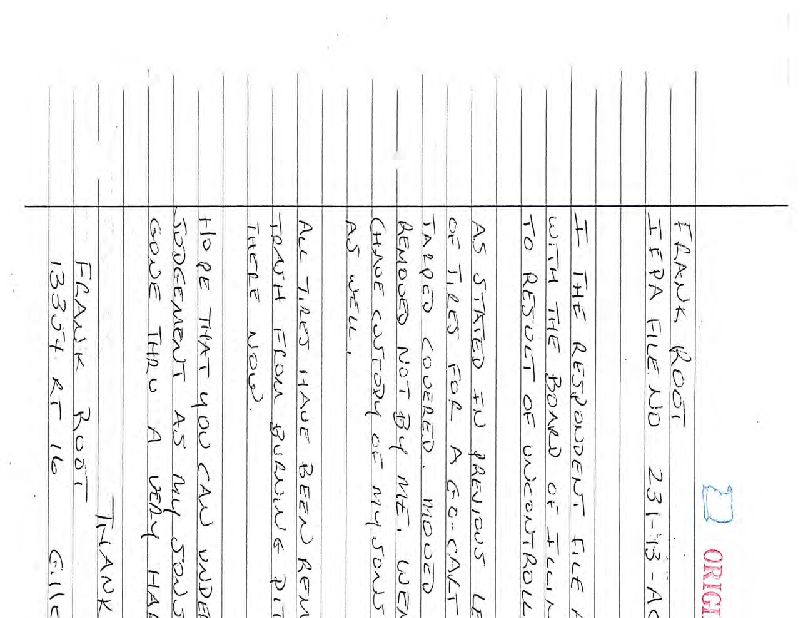 ORIGI
FRANK ROOT
IEPA FILE NO 231-13-AC
I THE RESPONDENT FILE A
WITH THE BOARD OF ILLIN
TO RESULT OF UNCONTROLL
AS STATED IN PREVIOUS LE
OF TIRES FOR A GO-CART
TARPED COVERED. MOVED
REMOVED NOT BY ME. WEN
CHAVE CUSTODY OF MY SONS
AS WELL.
ALL TIRES HAVE BEEN REM
TRASH FROM BURNING PIT
THERE NOW.
HOPE THAT YOU CAN UNDE
JUDGEMENT AS MY SONS
GONE THRU A VERY HA
THANK
FRANK ROOT
13354 RT 16 GIlle